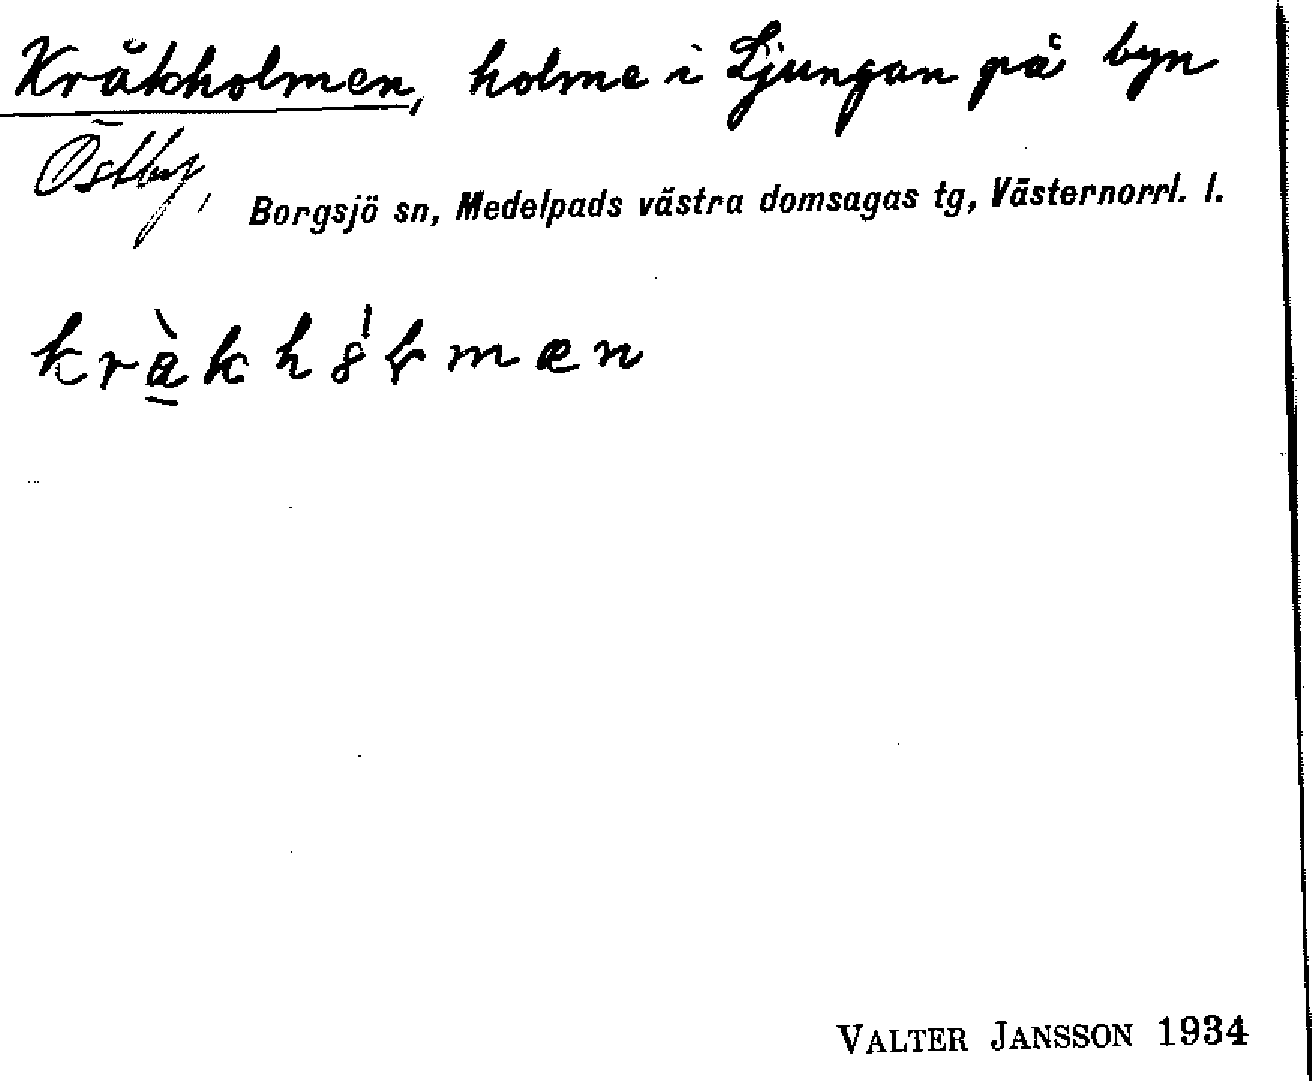 Kråkholmen, holme i Ljungan på byn
Östby, Borgsjö sn, Medelpads västra domsagas tg, Västernorrl. l.
VALTER JANSSON 1934